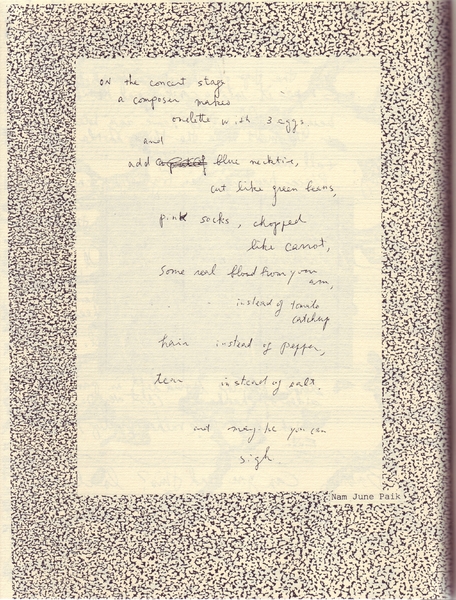 on the concert stage
a composer makes
omelette with 3 eggs
and
add blue necktie,
cut like green beens,
pink socks, chopped
like carrot,
some real blood from your
arm,
instead of tomato
catchup
hair instead of pepper,
tear instead of salt.
and may-be you can
sigh.
Nam June Paik